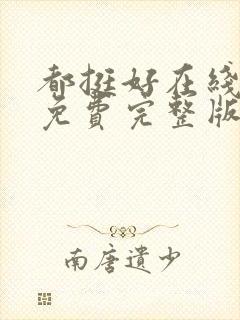 都挺好在线
免費完整版
南唐遗少